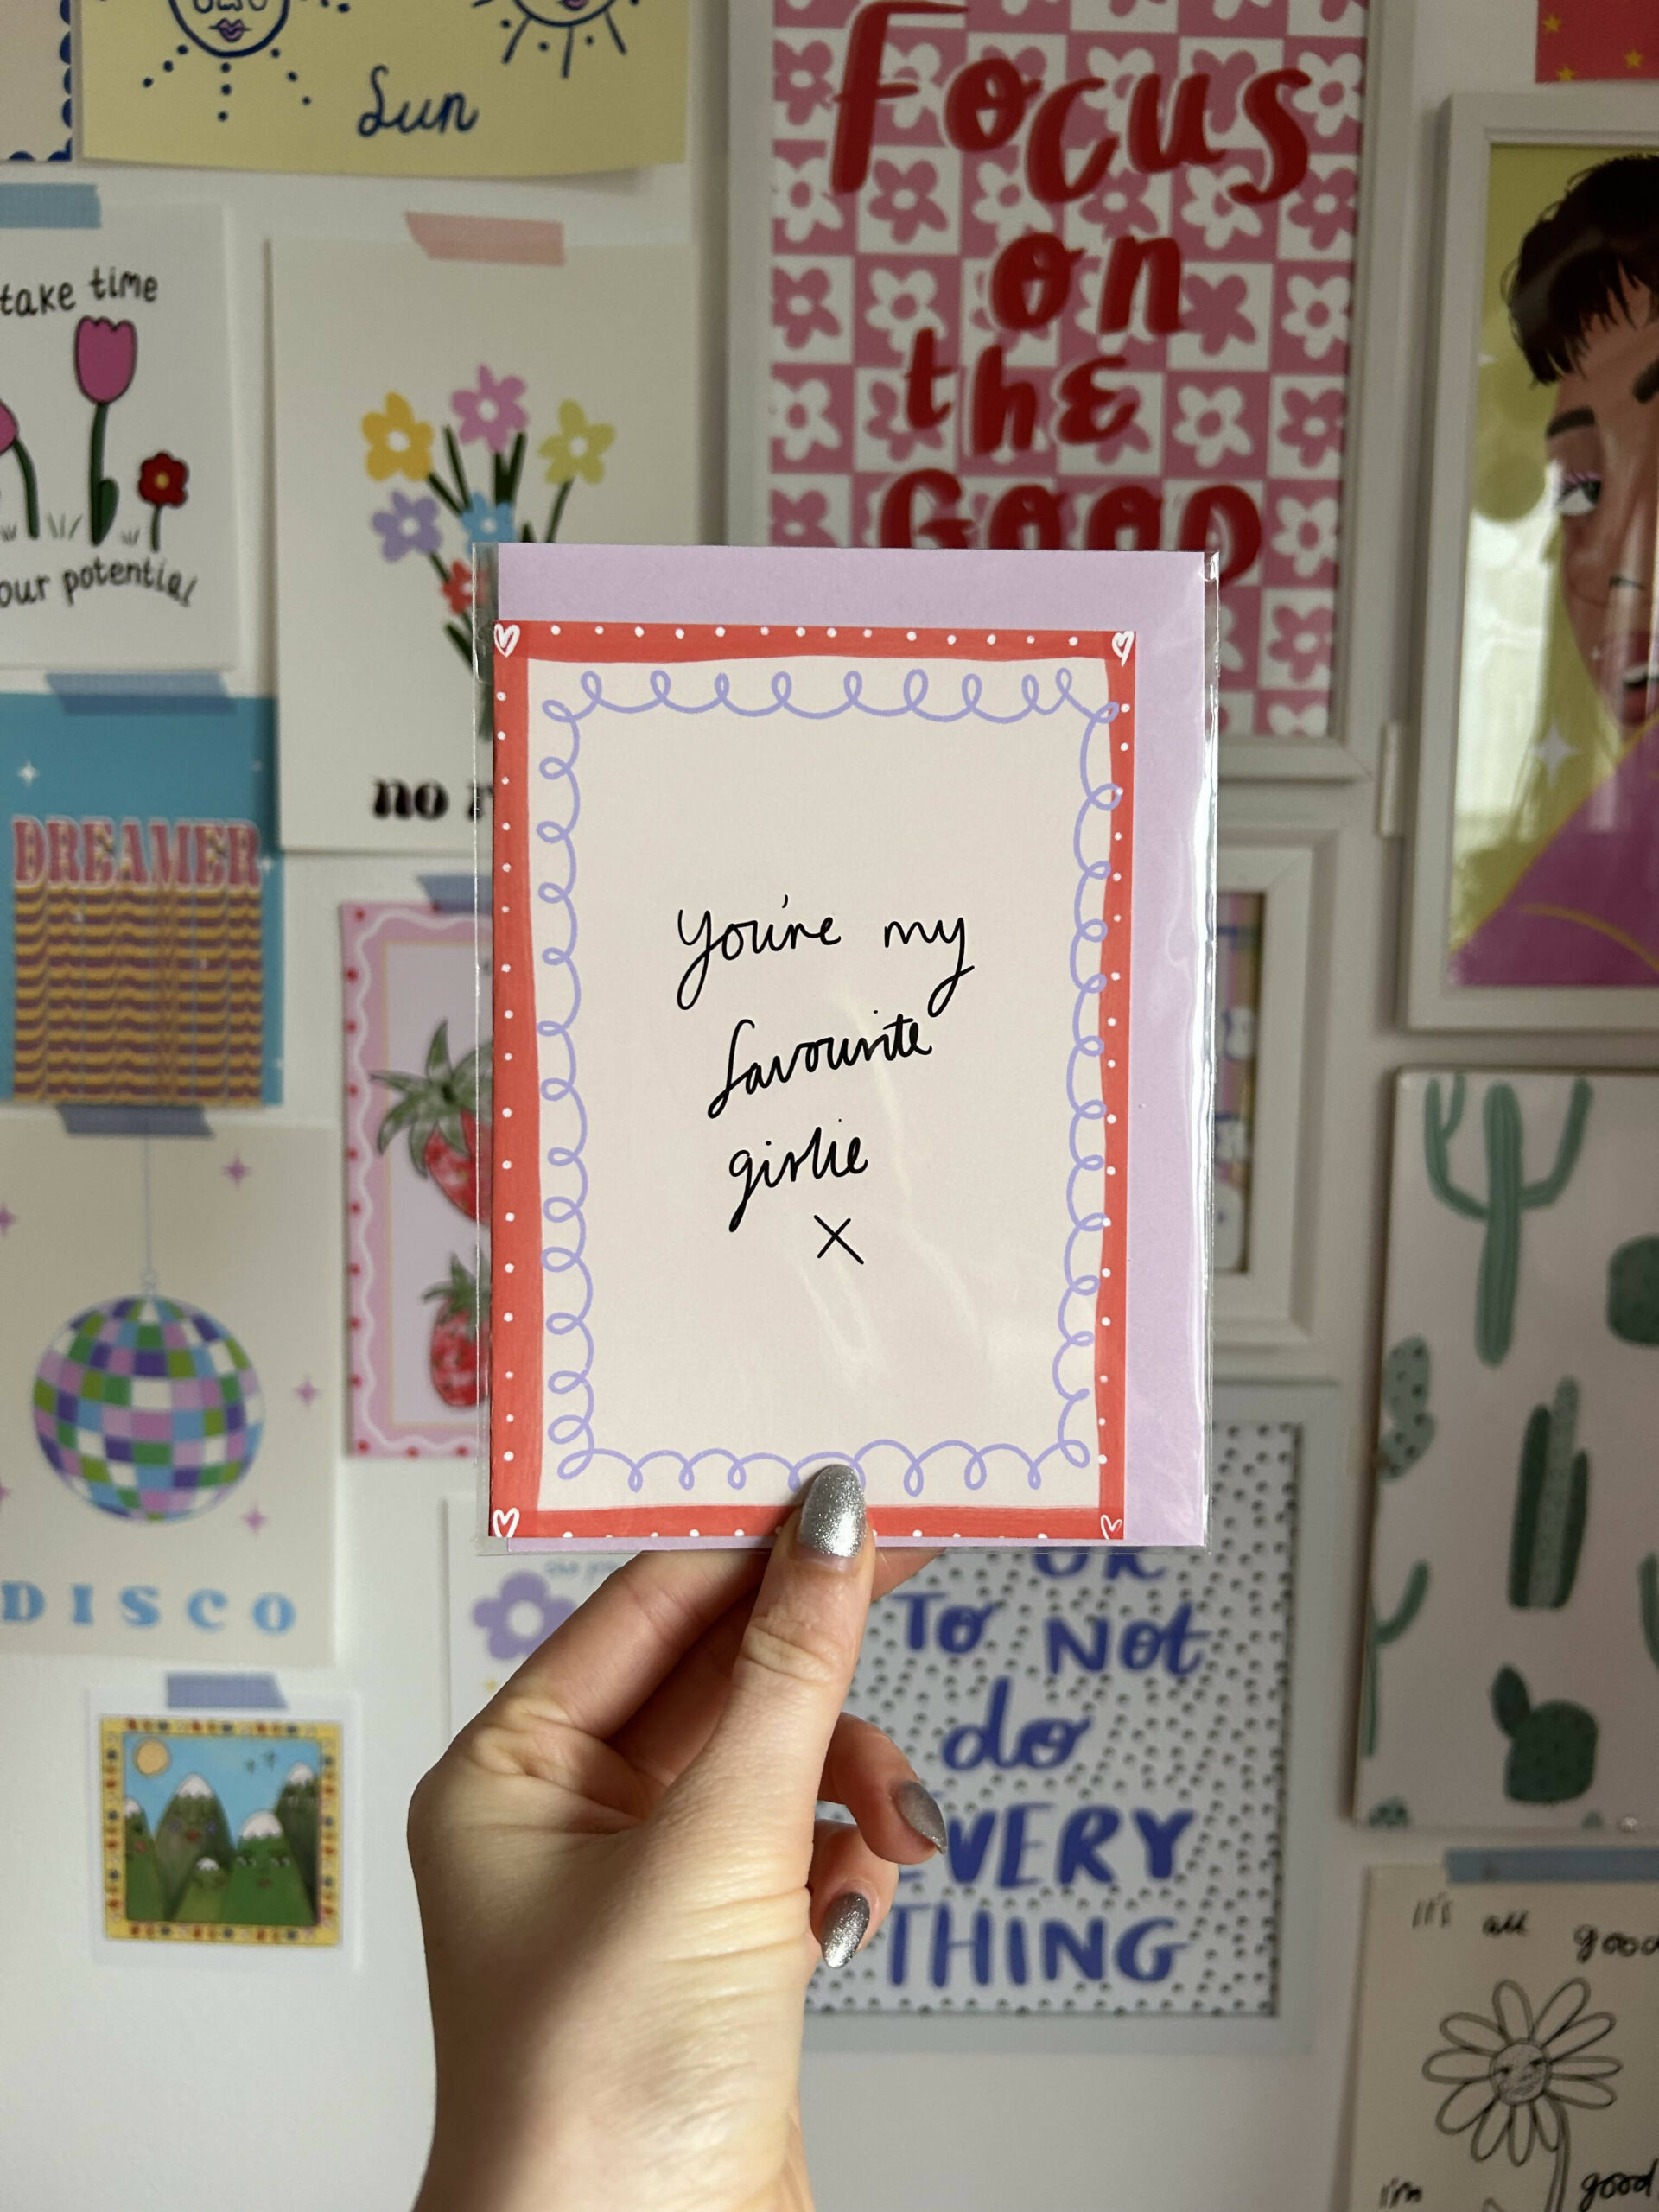 Sun
Focus
on
the
GOOD
take time
our potential
no
DREAMER
You're my
favourite
girlie
X
DISCO
OR
To Not
do
EVERY
THING
It's all good
i'm good